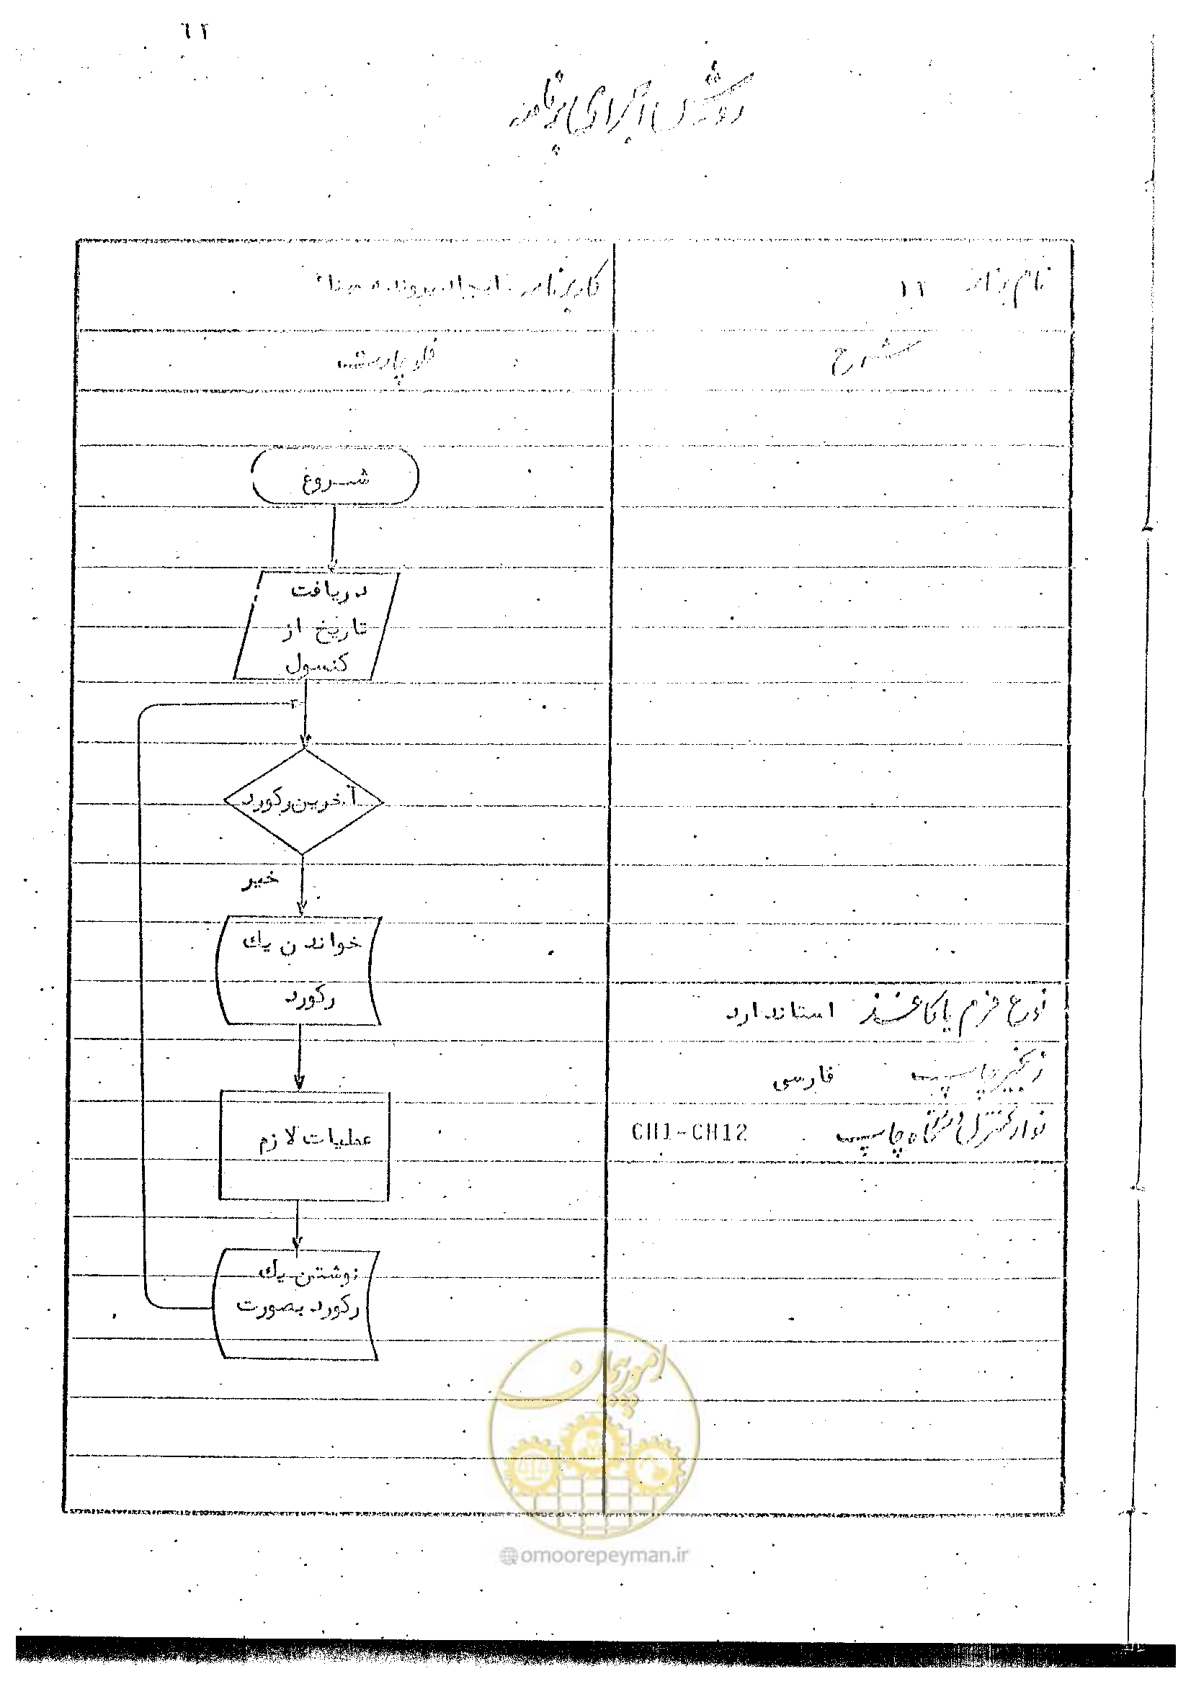 ٦٢
روش اجرای برنامه
نام برنامه ١٢
کاربرنامه ایجاد پرونده مبنا
شرح
فلوچارت
شروع
دریافت
تاریخ از
کنسول
آخرین رکورد
خیر
خواندن یك
رکورد
عملیات لازم
نوشتن یك
رکورد بصورت
نوع فرم یا کاغذ استاندارد
زنجیر چاپ فارسی
نوار کنترل دستگاه چاپ CH1-CH12
امور پیمان
@omoorepeyman.ir